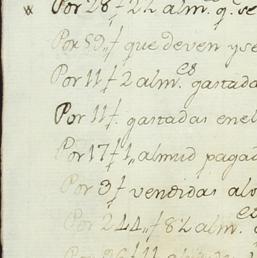 Por 28 f 2½ alm.
Por 59,, f que deven y se
Por 11 f 2 alm.es gastada
Por 11 f. gastadas en el
Por 17 f 1,, almud pagad
Por 3 f vendidas a los
Por 244,, f 8½ alm.es